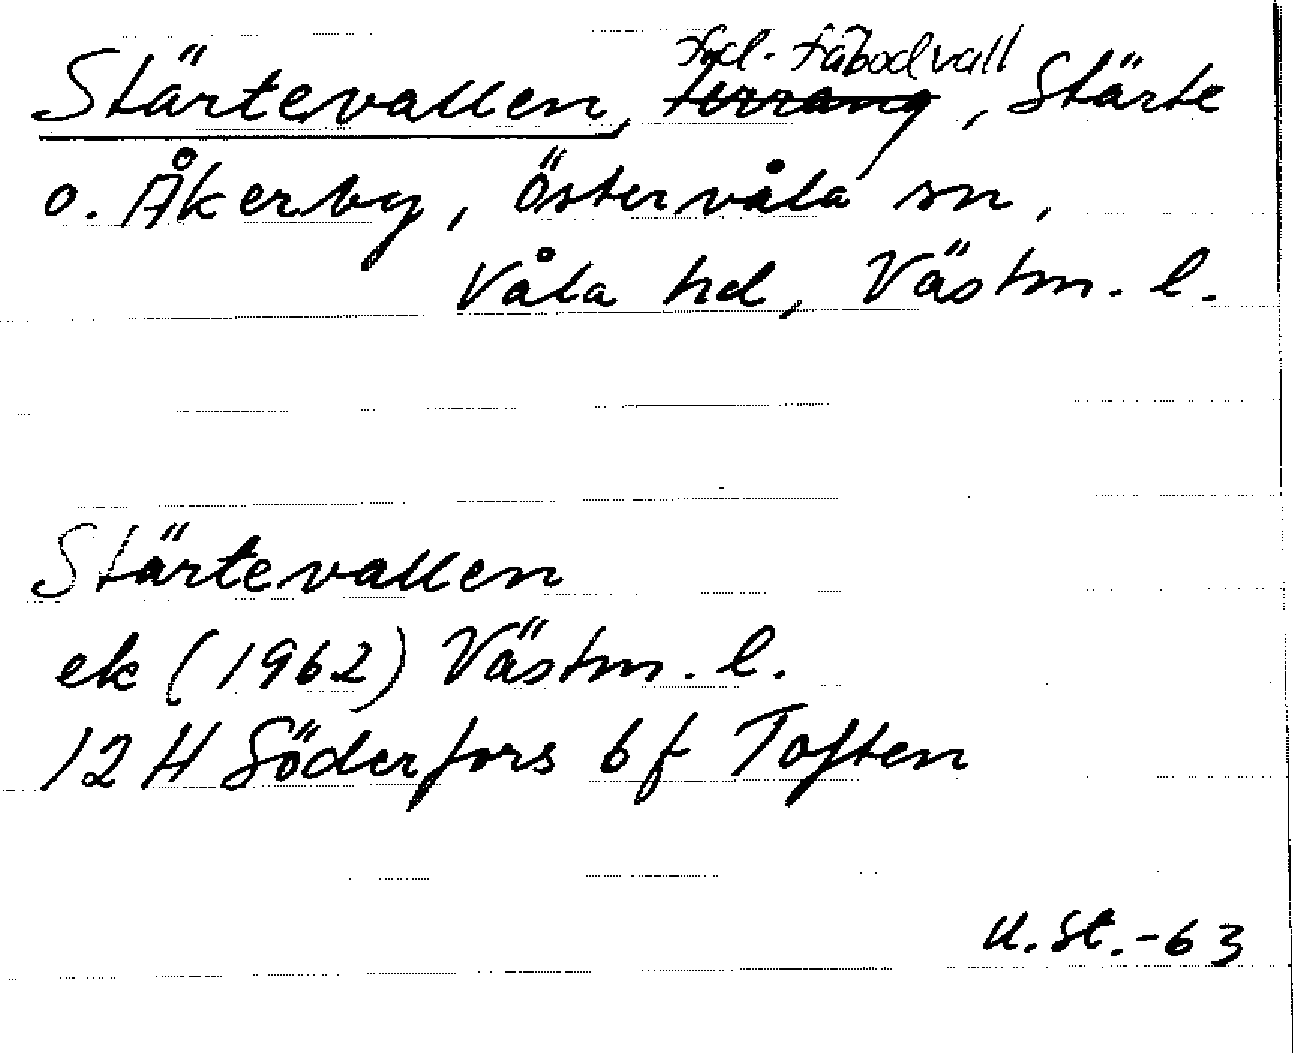 fd. fäbodvall
Stärtevallen, terräng, Stärte
o. Åkerby, Östervåla sn,
Våla hd, Västm. l.
Stärtevallen
ek (1962) Västm. l.
12 H Söderfors 6 f Toften
U. St. -63